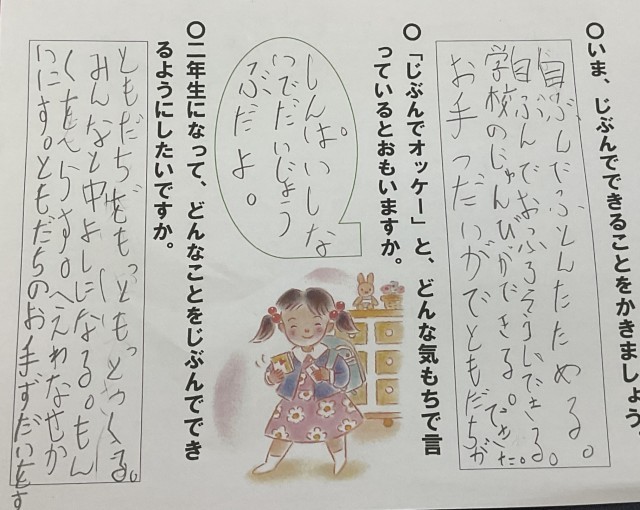 〇いま、じぶんでできることをかきましょう。
自ぶんでふとんたためる。
自ぶんでおふろそうじできる。
学校のじゅんびができる。できた。
お手つだいがでともだちが
〇「じぶんでオッケー」と、どんな気もちで言
っているとおもいますか。
しんぱいしな
いでだいじょう
ぶだよ。
〇二年生になって、どんなことをじぶんででき
るようにしたいですか。
ともだちをもっともっとつくる。
みんなと中よしになる。もん
くをへらす。へえわなせか
いにす。ともだちのお手ずだいとす